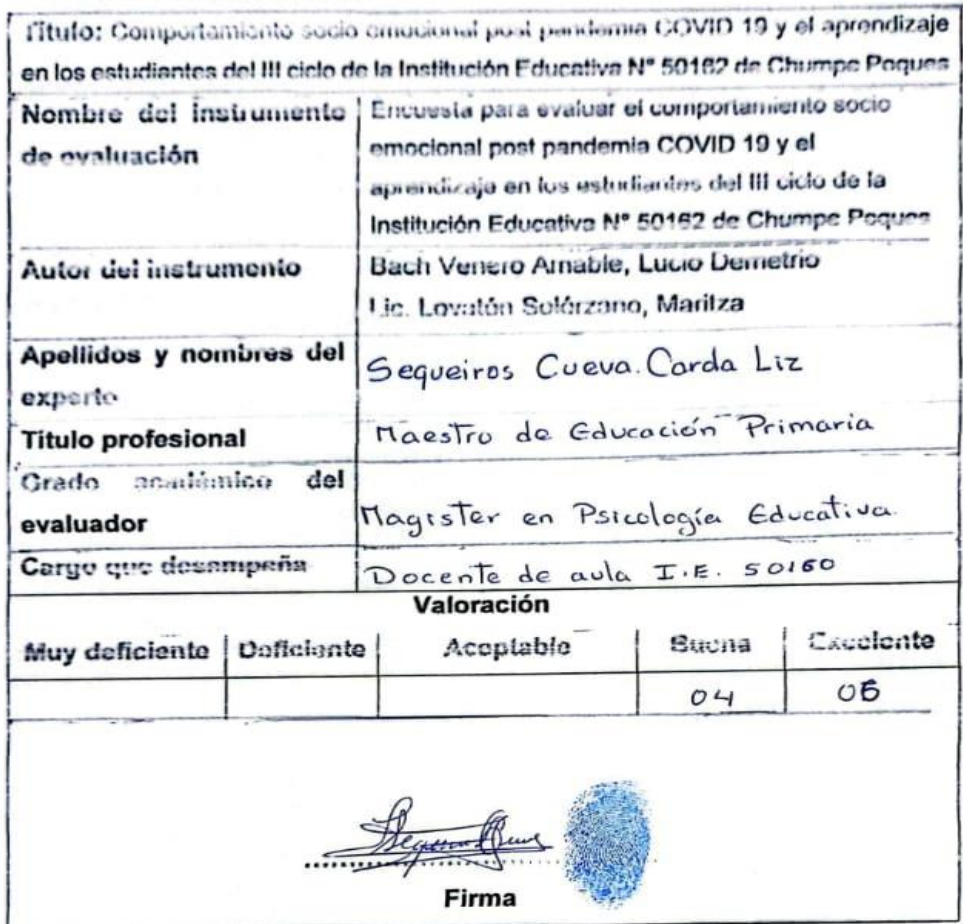 Título: Comportamiento socio emocional post pandemia COVID 19 y el aprendizaje
en los estudiantes del III ciclo de la Institución Educativa N° 50162 de Chumpe Poques
Nombre del instrumento de evaluación
Encuesta para evaluar el comportamiento socio
emocional post pandemia COVID 19 y el
aprendizaje en los estudiantes del III ciclo de la
Institución Educativa N° 50162 de Chumpe Poques
Autor del instrumento
Bach Venero Amable, Lucio Demetrio
Lic. Lovatón Solórzano, Maritza
Apellidos y nombres del
experto
Sequeiros Cueva. Carda Liz
Titulo profesional
Maestro de Educación Primaria
Grado académico del
evaluador
Magister en Psicología Educativa.
Cargo que desempeña
Docente de aula I.E. 50160
Valoración
Muy deficiente Deficiente Aceptable Buena Excelente
04
Firma